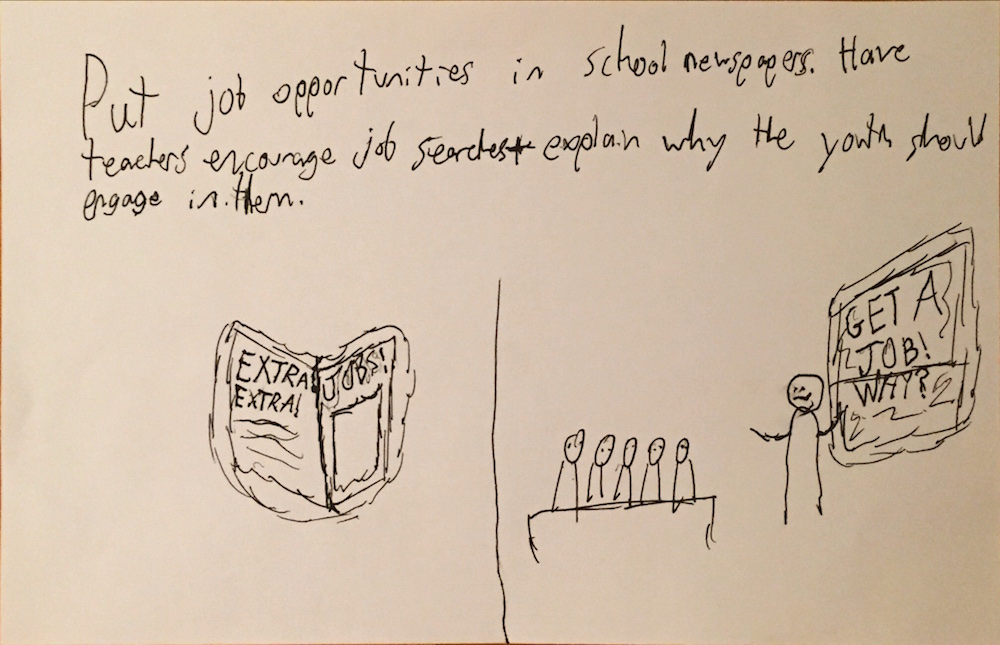 Put job opportunities in school newspapers. Have
teachers encourage job searches + explain why the youth should
engage in them.
EXTRA
EXTRA!
JOBS!
GET A
JOB!
WHY?